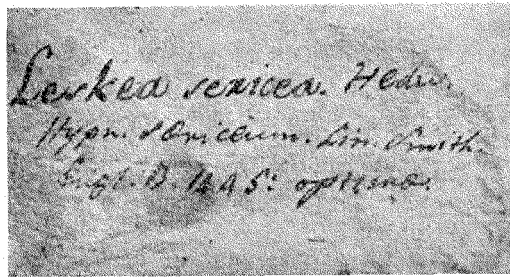 Leskea sericea. Hedw.
Hypn. sericeum. Lin. Smith.
Engl. B. 1445: optime.